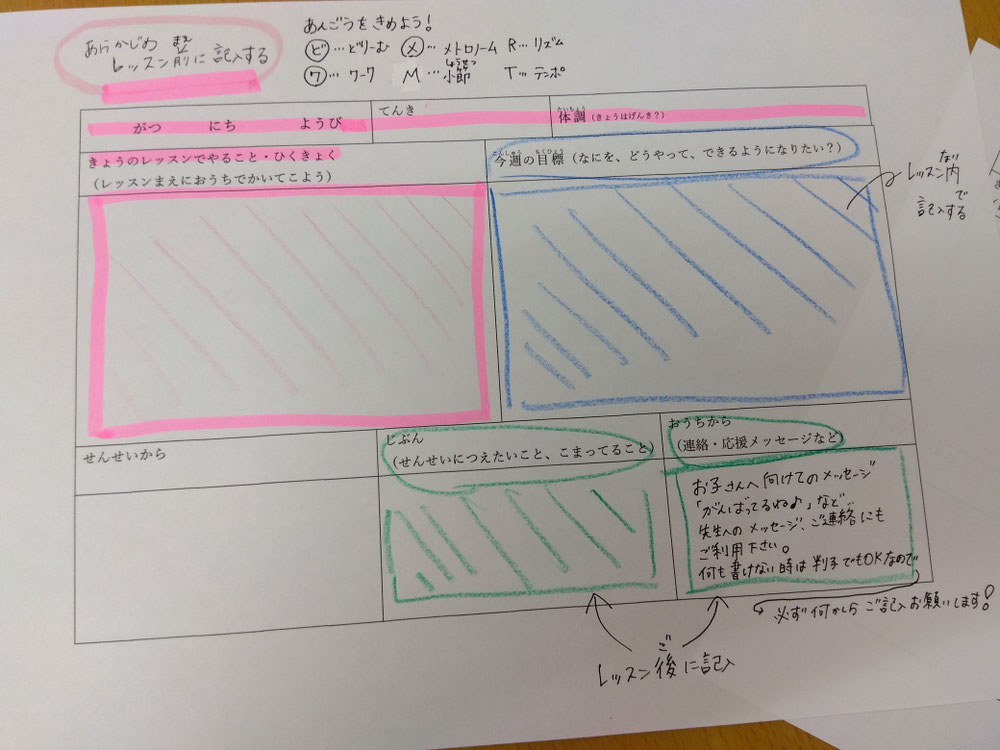 あらかじめ
まえ
レッスン前に記入する
あんごうをきめよう!
ど…どりーむ メ…メトロノーム R…リズム
しょうせつ
ワ…ワーク M…小節 T…テンポ
がつ にち ようび
てんき
たいちょう
体調(きょうはげんき?)
きょうのレッスンでやること・ひくきょく
(レッスンまえにおうちでかいてこよう)
こんしゅう もくひょう
今週の目標(なにを、どうやって、できるようになりたい?)
ない
レッスン内
で
記入する
せんせいから
じぶん
(せんせいにつえたいこと、こまってること)
おうちから
(連絡・応援メッセージなど)
お子さんへ向けてのメッセージ
「がんばってるね♪」など
先生へのメッセージ、ご連絡にも
ご利用下さい。
何も書けない時は判子でもOKなので
必ず何かしらご記入お願いします!
ご
レッスン後に記入